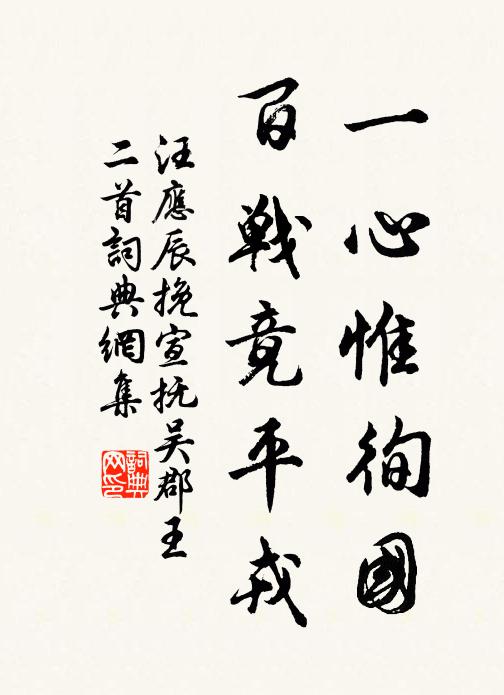 一心惟徇國
百戰竟平戎
汪應辰挽宣抚吴郡王
二首詞典網集
詞典网印